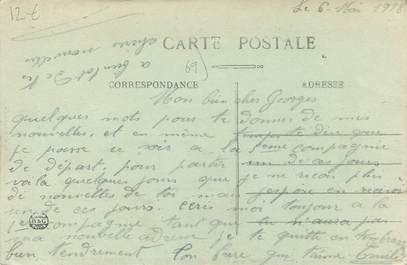 12 €
Le 6 Mai 1918
a bientot de tes
chères nouvelles
CARTE POSTALE
69
CORRESPONDANCE
ADRESSE
Mon bien cher Georges
quelques mots pour te donner de mes
nouvelles, et en même temps te dire que
je passe ce soir a la 1ème compagnie
de départ, pour partir un de ces jours
voilà quelques jours que je ne reçois plus
de nouvelles de toi mais j'espère en recevoir
un de ces jours. Ecris moi toujours a la
compagnie tant que tu n'auras pas
ma nouvelle adresse je te quitte en t'embrassant
bien tendrement Ton frère qui t'aime Emile